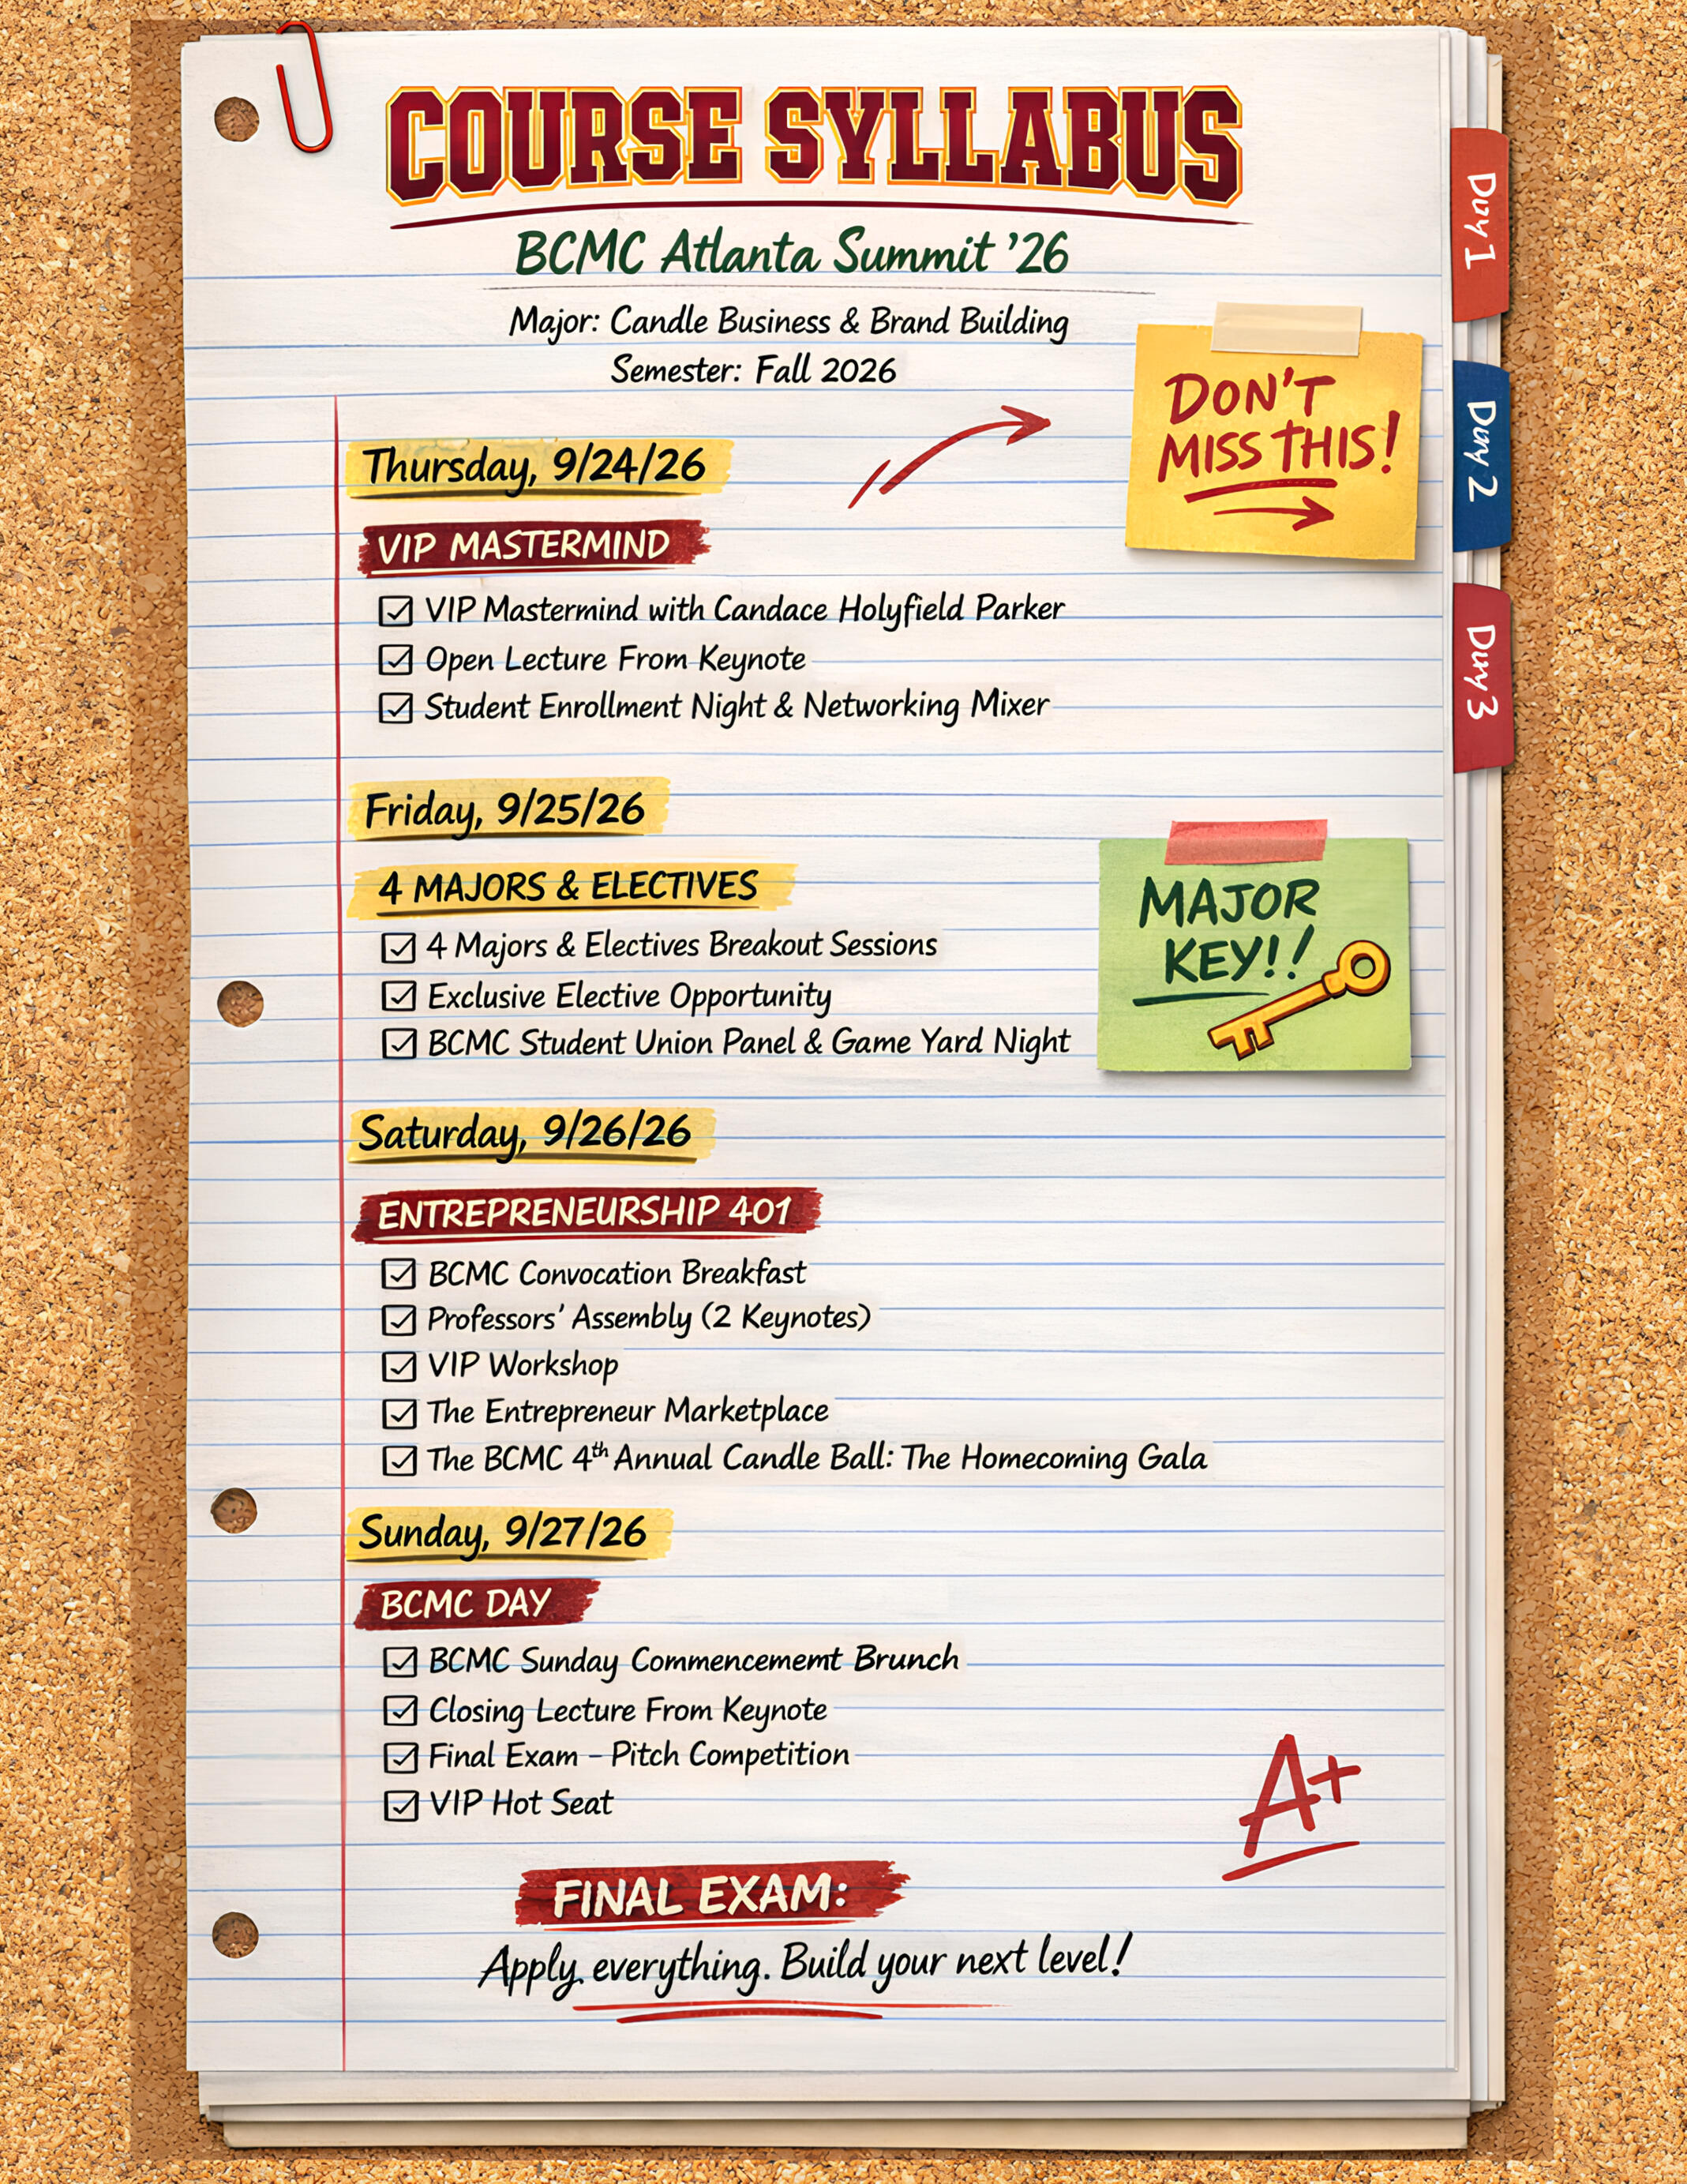 COURSE SYLLABUS
BCMC Atlanta Summit '26
Major: Candle Business & Brand Building
Semester: Fall 2026
DON'T
MISS THIS!
Day 1
Day 2
Day 3
Thursday, 9/24/26
VIP MASTERMIND
VIP Mastermind with Candace Holyfield Parker
Open Lecture From Keynote
Student Enrollment Night & Networking Mixer
Friday, 9/25/26
4 MAJORS & ELECTIVES
4 Majors & Electives Breakout Sessions
Exclusive Elective Opportunity
BCMC Student Union Panel & Game Yard Night
MAJOR
KEY!!
Saturday, 9/26/26
ENTREPRENEURSHIP 401
BCMC Convocation Breakfast
Professors' Assembly (2 Keynotes)
VIP Workshop
The Entrepreneur Marketplace
The BCMC 4th Annual Candle Ball: The Homecoming Gala
Sunday, 9/27/26
BCMC DAY
BCMC Sunday Commencememt Brunch
Closing Lecture From Keynote
Final Exam – Pitch Competition
VIP Hot Seat
A+
FINAL EXAM:
Apply everything. Build your next level!